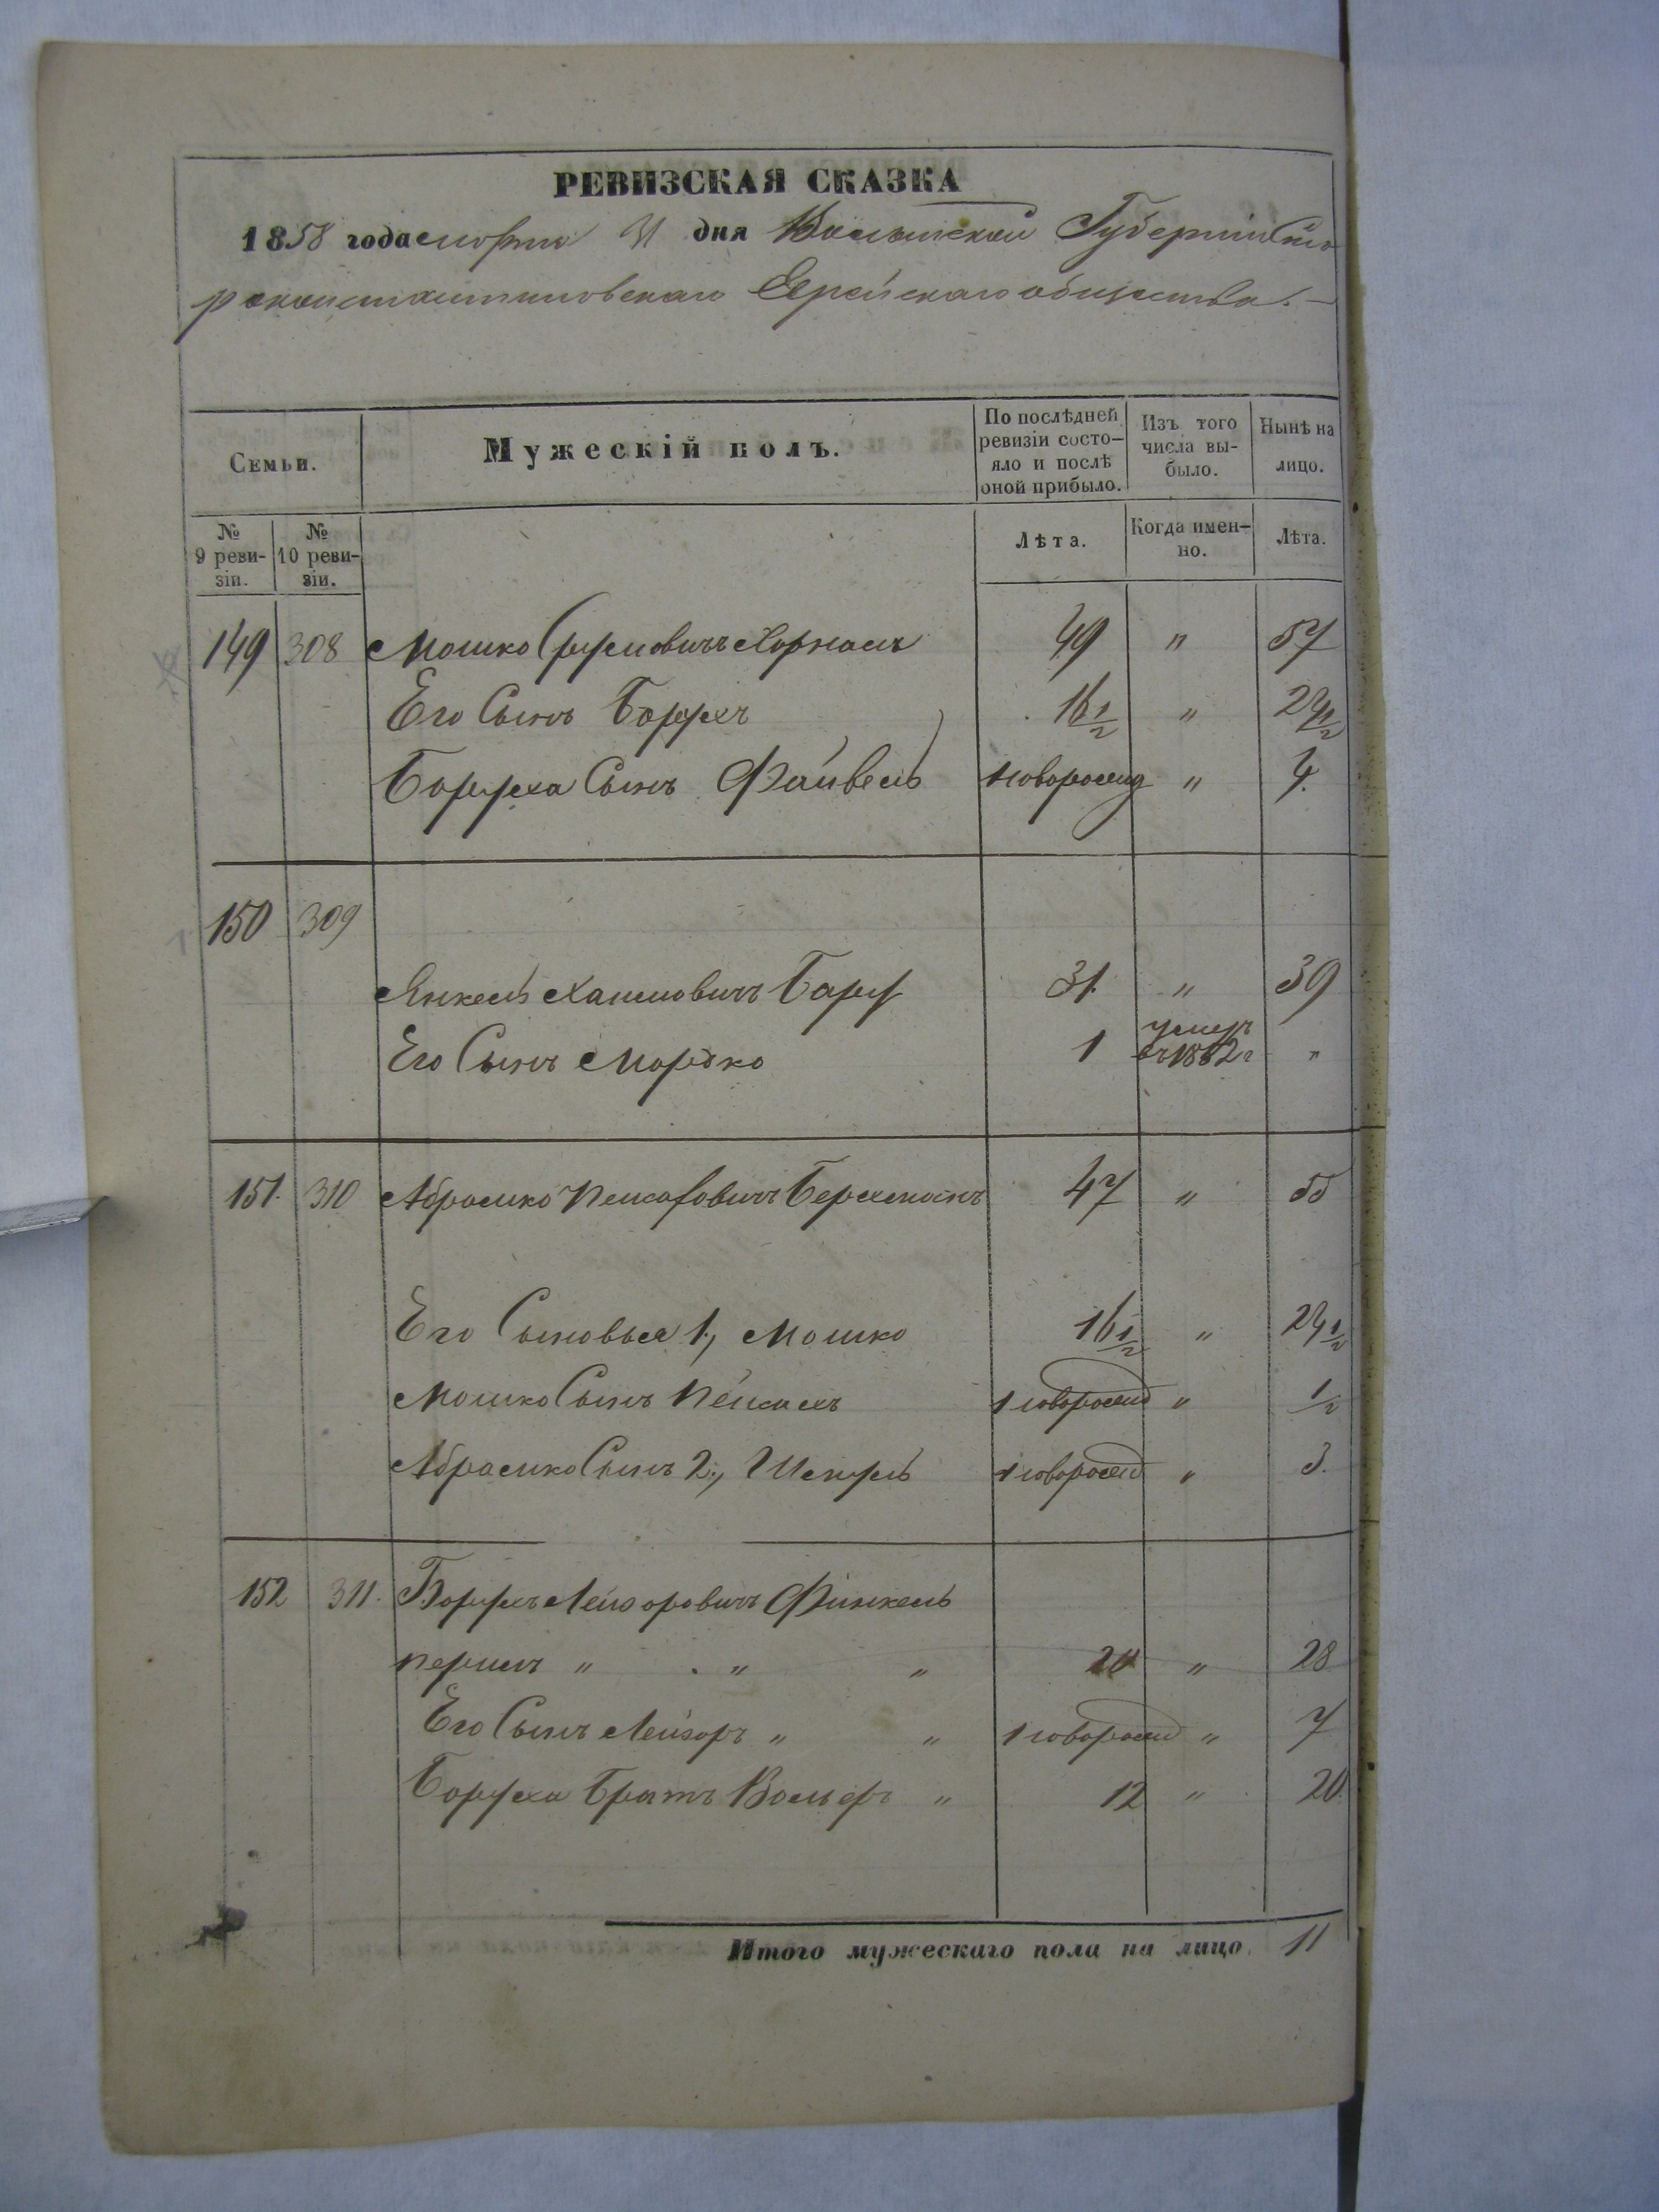 РЕВИЗСКАЯ СКАЗКА
1858 года марта 31 дня Волынской Губерніи Ста
роконстантиновскаго Еврейскаго общества.
Семьи.
Мужескій полъ.
По послѣдней ревизіи состо-
яло и послѣ оной прибыло.
Изъ того числа вы-
было.
Нынѣ на лицо.
№ 9 реви-
зіи.
№ 10 реви-
зіи.
Лѣта.
Когда имен-
но.
Лѣта.
149 308 Мошко Сруловичъ 49 " 57
Его Сынъ Борухъ 16 1/2 " 24 1/2
Боруха Сынъ Файвель новорожд " 4.
150 309
Янкель Хаимовичъ 31. " 39
Его Сынъ Мордко 1 умеръ въ 1852 г "
151. 310 Абрамко Пейсаховичъ 47 " 55
Его Сыновья 1, Мошко 16 1/2 " 24 1/2
Мошко Сынъ Пейсахъ новорожд " 1/2
Абрамко Сынъ 2, новорожд " 3.
152 311. Борухъ Лейзоровичъ Финкель
" " " 20 " 28
Его Сынъ Лейзоръ " " новорожд " 7
Боруха Братъ " 12 " 20.
Итого мужескаго пола на лицо. 11